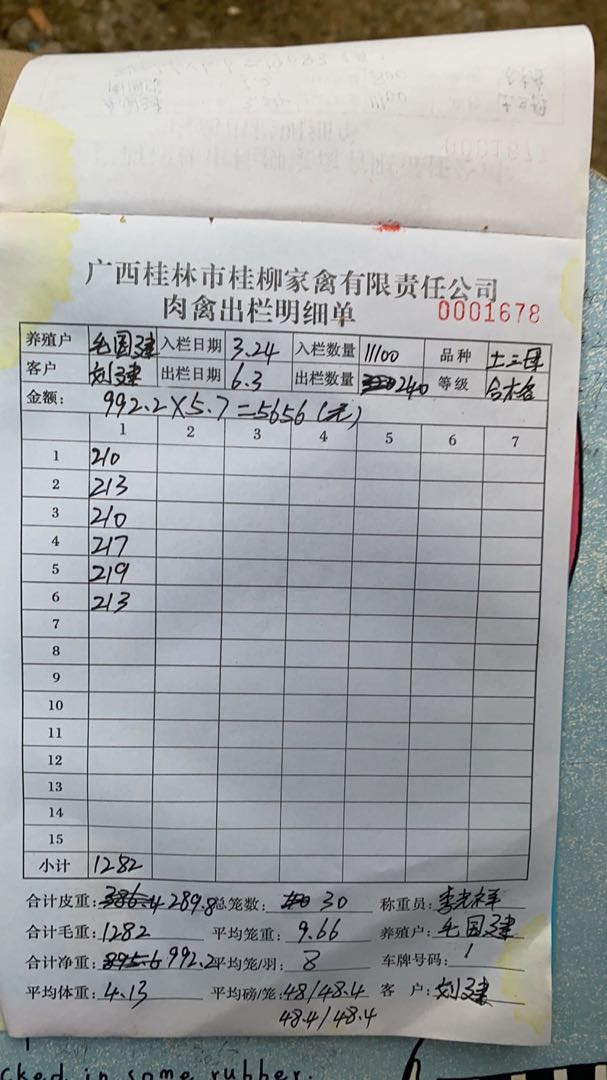 广西桂林市桂柳家禽有限责任公司
肉禽出栏明细单 0001678
养殖户 毛国建 入栏日期 3.24 入栏数量 11100 品种 土三黑
客户 刘建 出栏日期 6.3 出栏数量 240 等级 合格
金额: 992.2×5.7=5656(元)
1 2 3 4 5 6 7
1 210
2 213
3 210
4 217
5 219
6 213
7
8
9
10
11
12
13
14
15
小计 1282
合计皮重: 289.8 总笼数: 30 称重员: 李光祥
合计毛重: 1282 平均笼重: 9.66 养殖户: 毛国建
合计净重: 992.2 平均笼/羽: 8 车牌号码: 1
平均体重: 4.13 平均磅/笼: 48/48.4 客 户: 刘建
48.4/48.4
cked in some rubber.